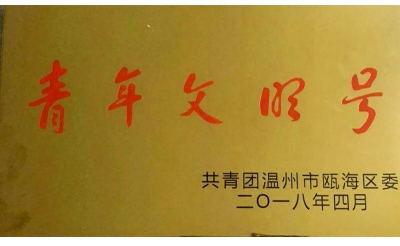 青年文明号
共青团温州市瓯海区委
二〇一八年四月